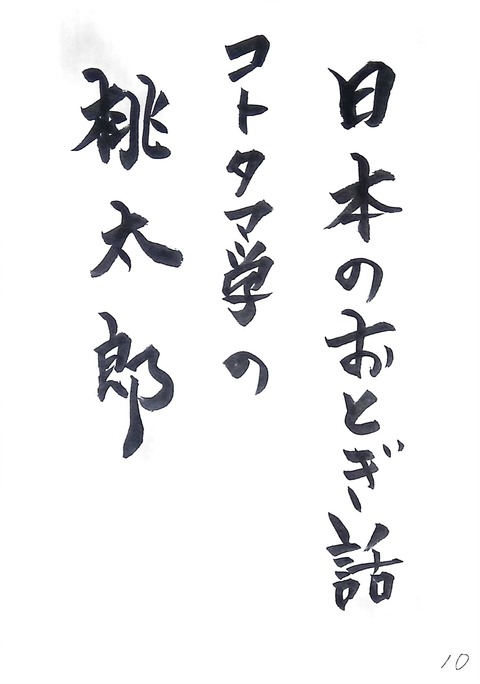 日本のおとぎ話
コトタマ学の
桃太郎
10